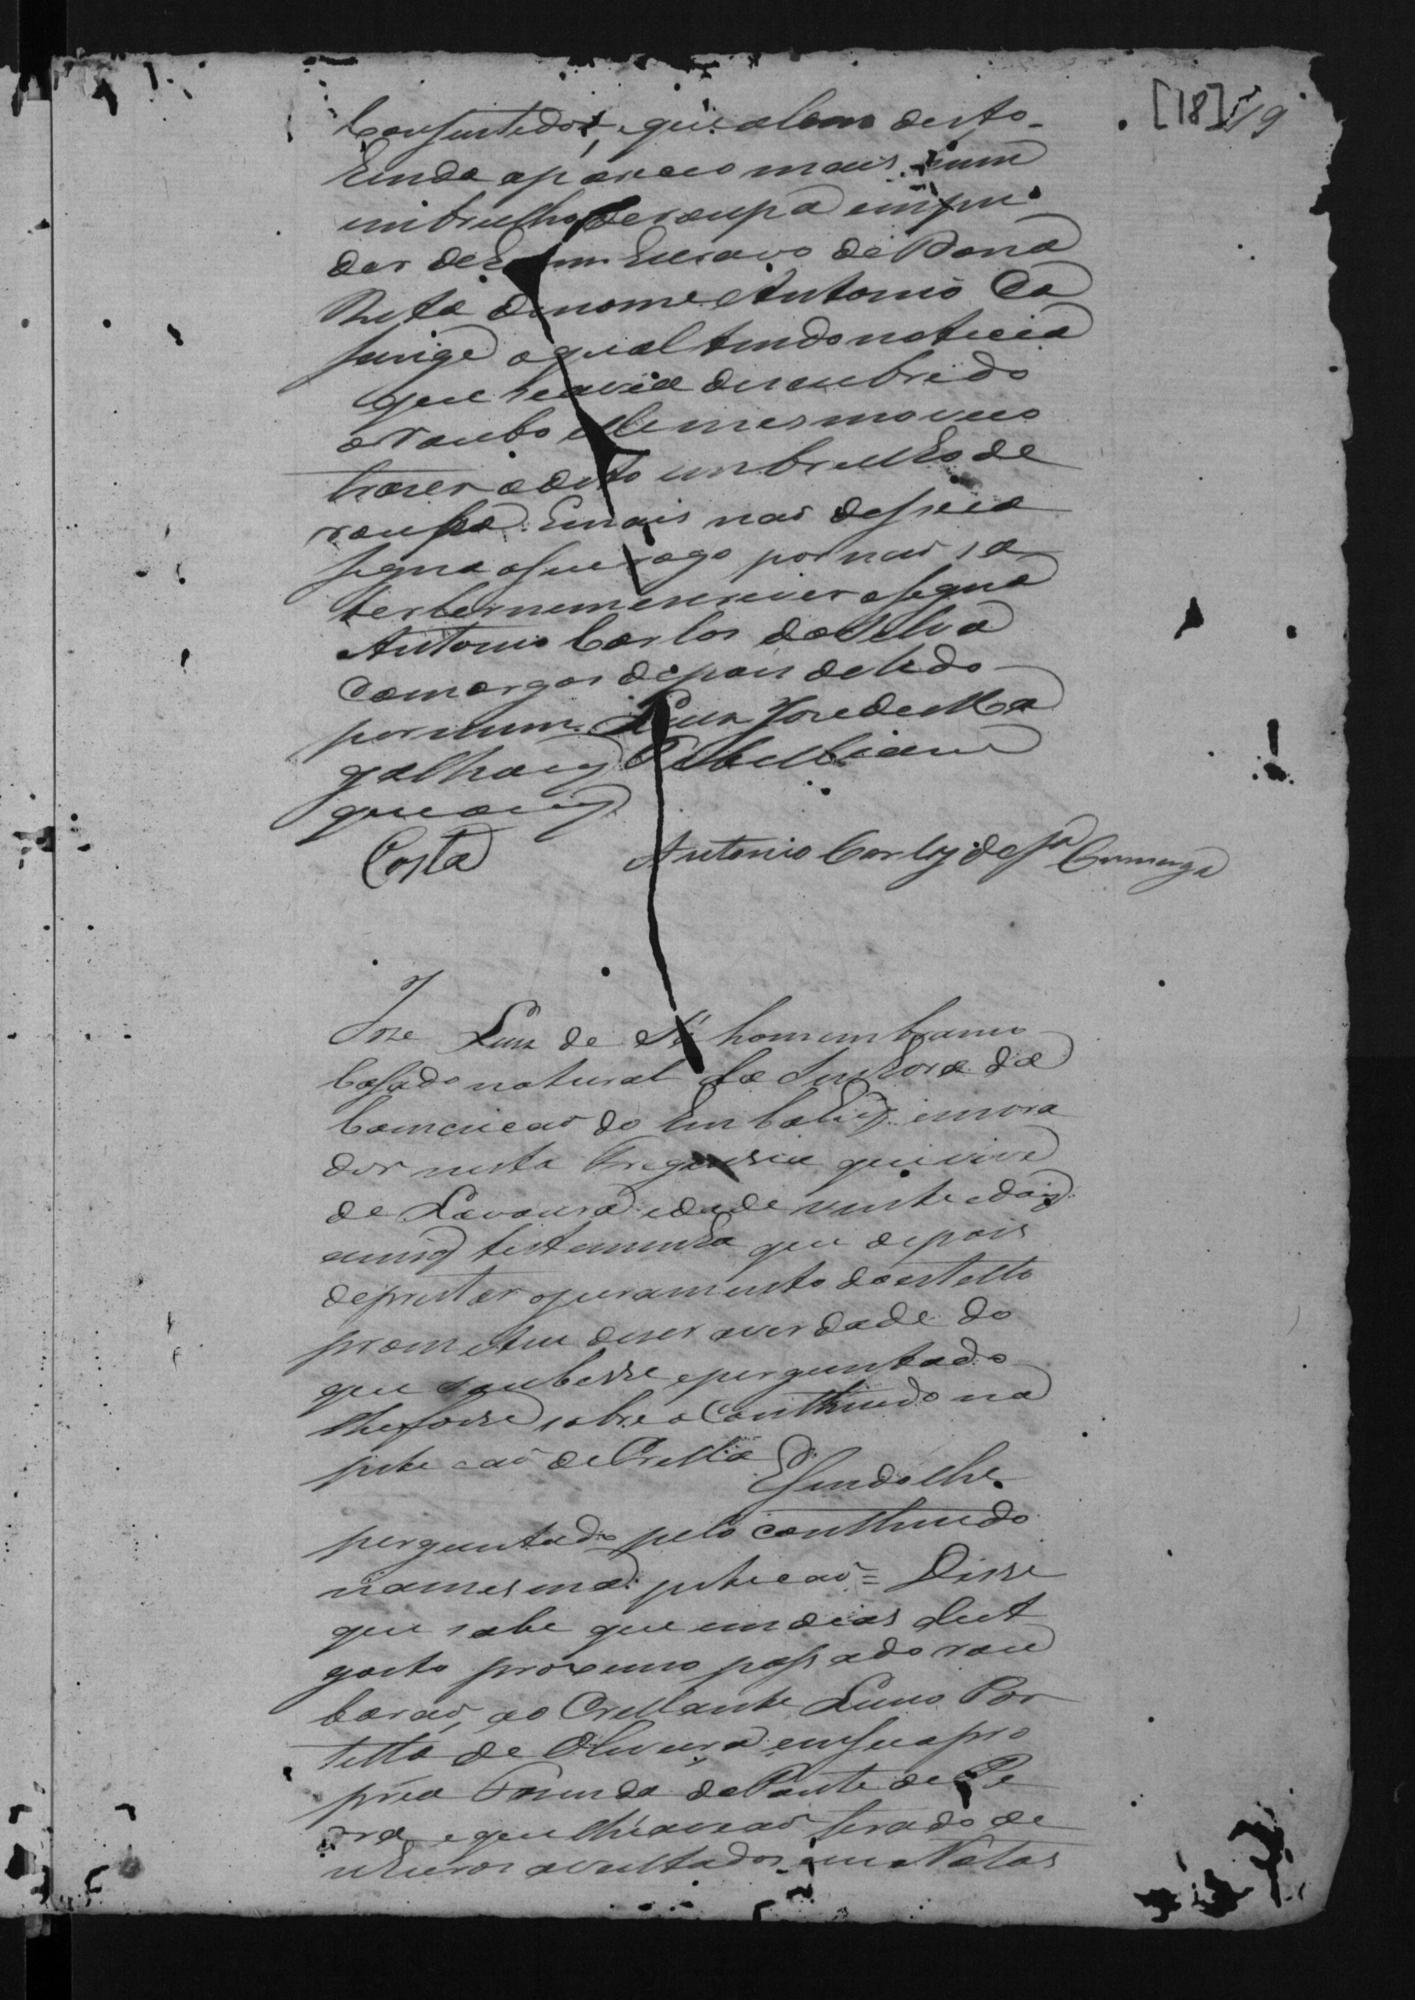 [18] 19
Confustedos, que alem desto
Einda apareceo mais hum
imbrulho de roupa em pu
der de hum Escravo de Dona
Rita de nome Antonio Ca
sange o qual tendo noticia
que havia descubrido
o roubo elle mesmo veio
trazer o dito imbrulho de
roupa. Emais naõ disse e a
signa o seu rogo por naõ sa
ber ler nem escrever asigna
Antonio Carlos da Silva
Camargos depois de lido
por mim Luiz Jose de Ma
galhaes Tabelliam
que o escrevy
Costa Antonio Carlos de Sa Camargo
Jose Luiz de Sá homem branco
Casado natural da Senhora da
Comceicaõ do e mora
dor nesta Freguesia que vive
de Lavoura idade vinte e dois
annos testemunha que depois
de prestar o juramento do estillo
prometeu dizer a verdade do
que soubesse e perguntado
lhe fosse sobre o Conthiudo na
peticaõ de Orella
E sendo lhe
perguntado pelo conthiudo
na mesma peticaõ = Disse
que sabe que em dias de
gosto proximo passado rou
baraõ, ao Orellante Lino Por
tella de Oliveira em sua pro
pria Fasenda da Ponte de Pe
dra e que lhe aviaõ furado de
nheiros avultados em Notas